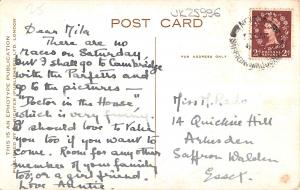 UK25996
POST CARD
THIS IS AN EPHOTYPE PUBLICATION
LONDON
FOR ADDRESS ONLY
Dear Mila
There are no
races on Saturday
but I shall go to Cambridge
with the Parfetts and
go to the pictures —
"Doctor in the House",
which is very funny.
I should love to take
you too if you want to
come. Room for any other
member of your family
too, or a girl friend.
Love Auntie
Miss M.
14 Quickie Hill
Arkesden
Saffron Walden
Essex.